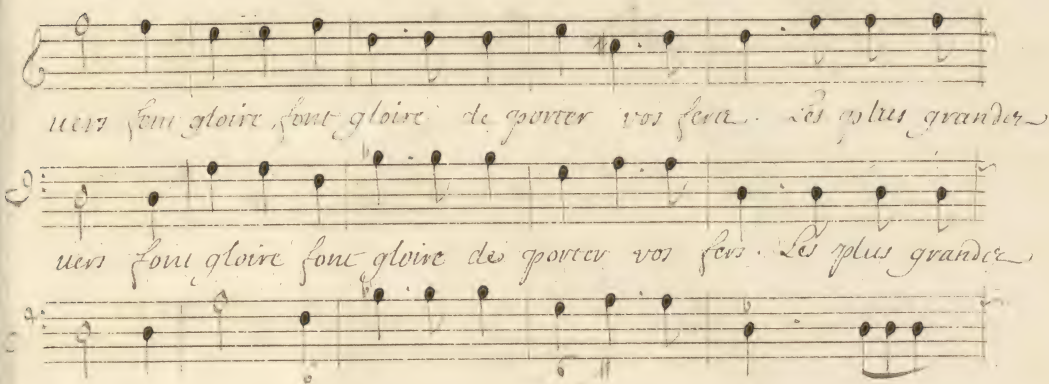 uers font gloire, font gloire de porter vos fers. Les plus grandes
uers font gloire font gloire de porter vos fers. Les plus grandes